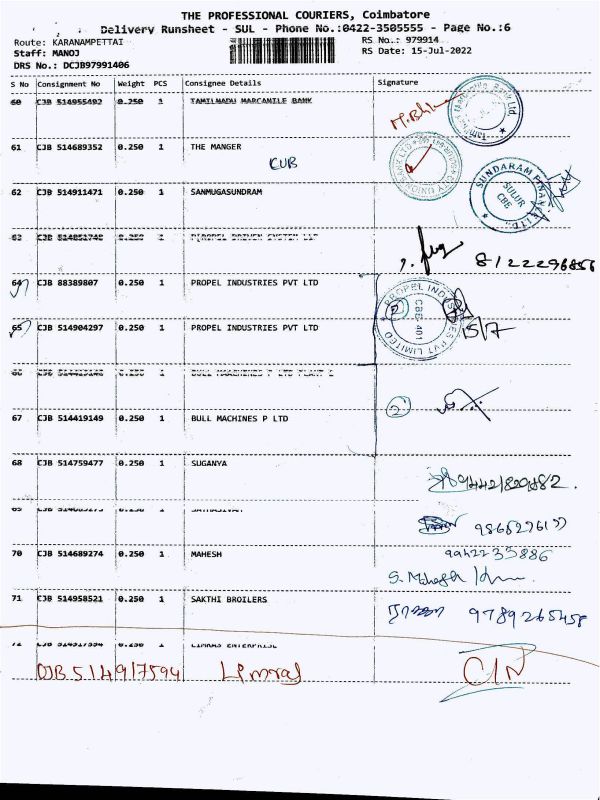 THE PROFESSIONAL COURIERS, Coimbatore
Delivery Runsheet - SUL - Phone No.:0422-3505555 - Page No.:6
Route: KARANAMPETTAI RS No.: 979914
Staff: MANOJ RS Date: 15-Jul-2022
DRS No.: DCJB97991406
S No Consignment No Weight PCS Consignee Details Signature
60 CJB 514955492 0.250 1 TAMILNADU MARCANILE BANK
61 CJB 514689352 0.250 1 THE MANGER
CUB
62 CJB 514911471 0.250 1 SANMUGASUNDRAM
SUNDARAM FINANCE LTD.
SULUR
CBE
63 0.250 1
8122296856
64 CJB 88389807 0.250 1 PROPEL INDUSTRIES PVT LTD
PROPEL INDUSTRIES PVT LIMITED
CBE-401
65 CJB 514904297 0.250 1 PROPEL INDUSTRIES PVT LTD
15/7
66 0.250 1
67 CJB 514419149 0.250 1 BULL MACHINES P LTD
2
68 CJB 514759477 0.250 1 SUGANYA
69 0.250 1
70 CJB 514689274 0.250 1 MAHESH
9942235886
71 CJB 514958521 0.250 1 SAKTHI BROILERS
9789265458
72 0.250 1 LIMRAS ENTERPRISE
CJB 514917594 Limras